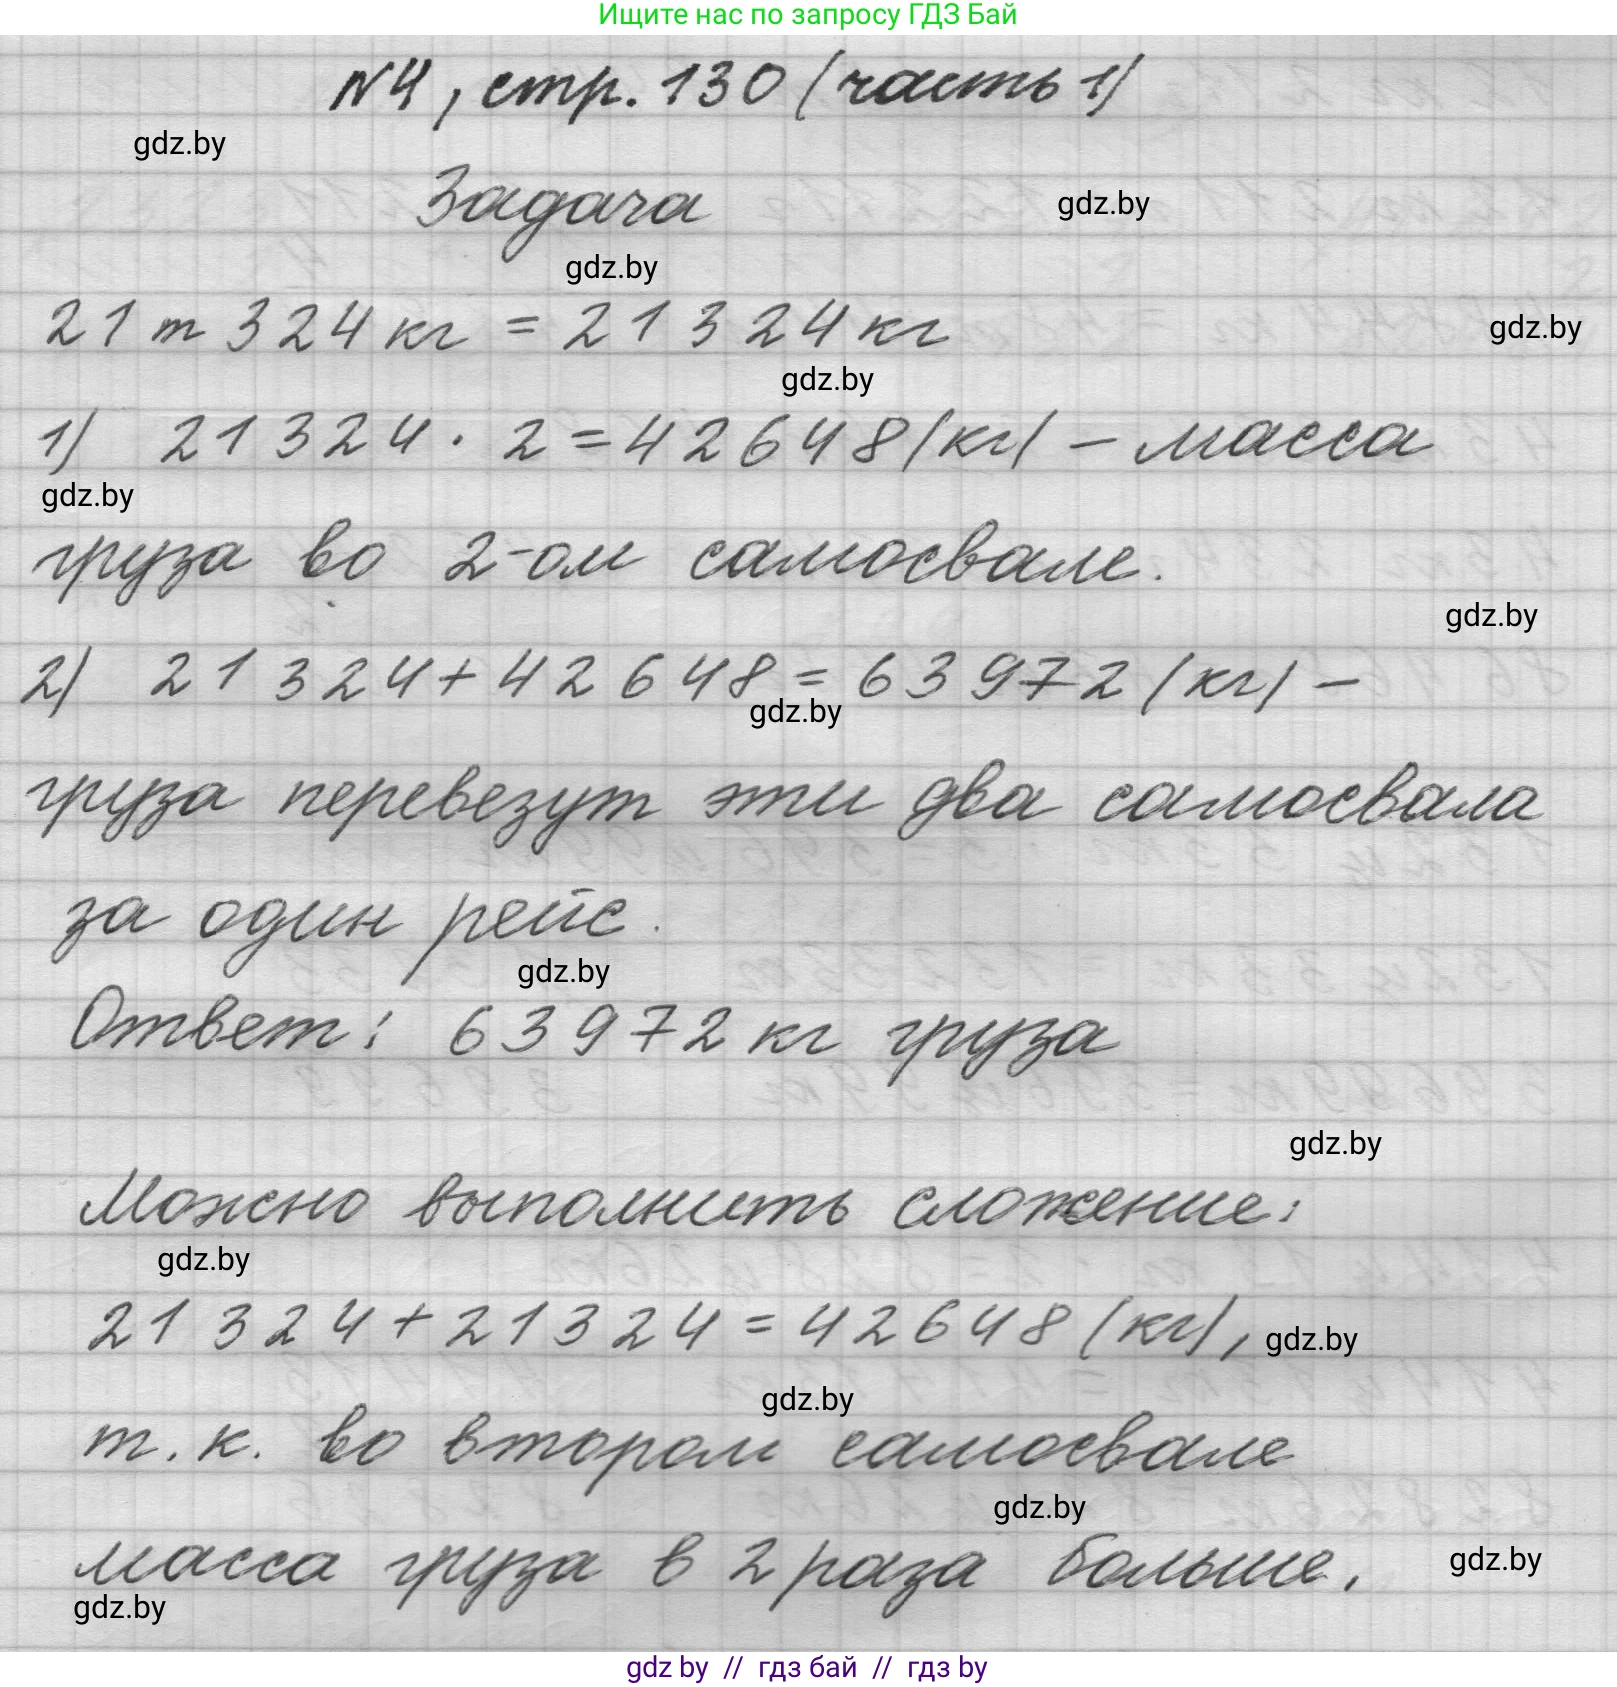 Ищите нас по запросу ГДЗ Бай
№4, стр. 130 (часть 1)
gdz.by
Задача
gdz.by
gdz.by
21 т 324 кг = 21 324 кг
gdz.by
gdz.by
1) 21 324 · 2 = 42 648 (кг) – масса
gdz.by
груза во 2-ом самосвале.
gdz.by
2) 21 324 + 42 648 = 63 972 (кг) –
gdz.by
груза перевезут эти два самосвала
за один рейс.
gdz.by
Ответ: 63 972 кг груза
gdz.by
Можно выполнить сложение:
gdz.by
21 324 + 21 324 = 42 648 (кг),
gdz.by
gdz.by
т. к. во втором самосвале
gdz.by
масса груза в 2 раза больше.
gdz.by
gdz.by
gdz by // гдз бай // гдз by